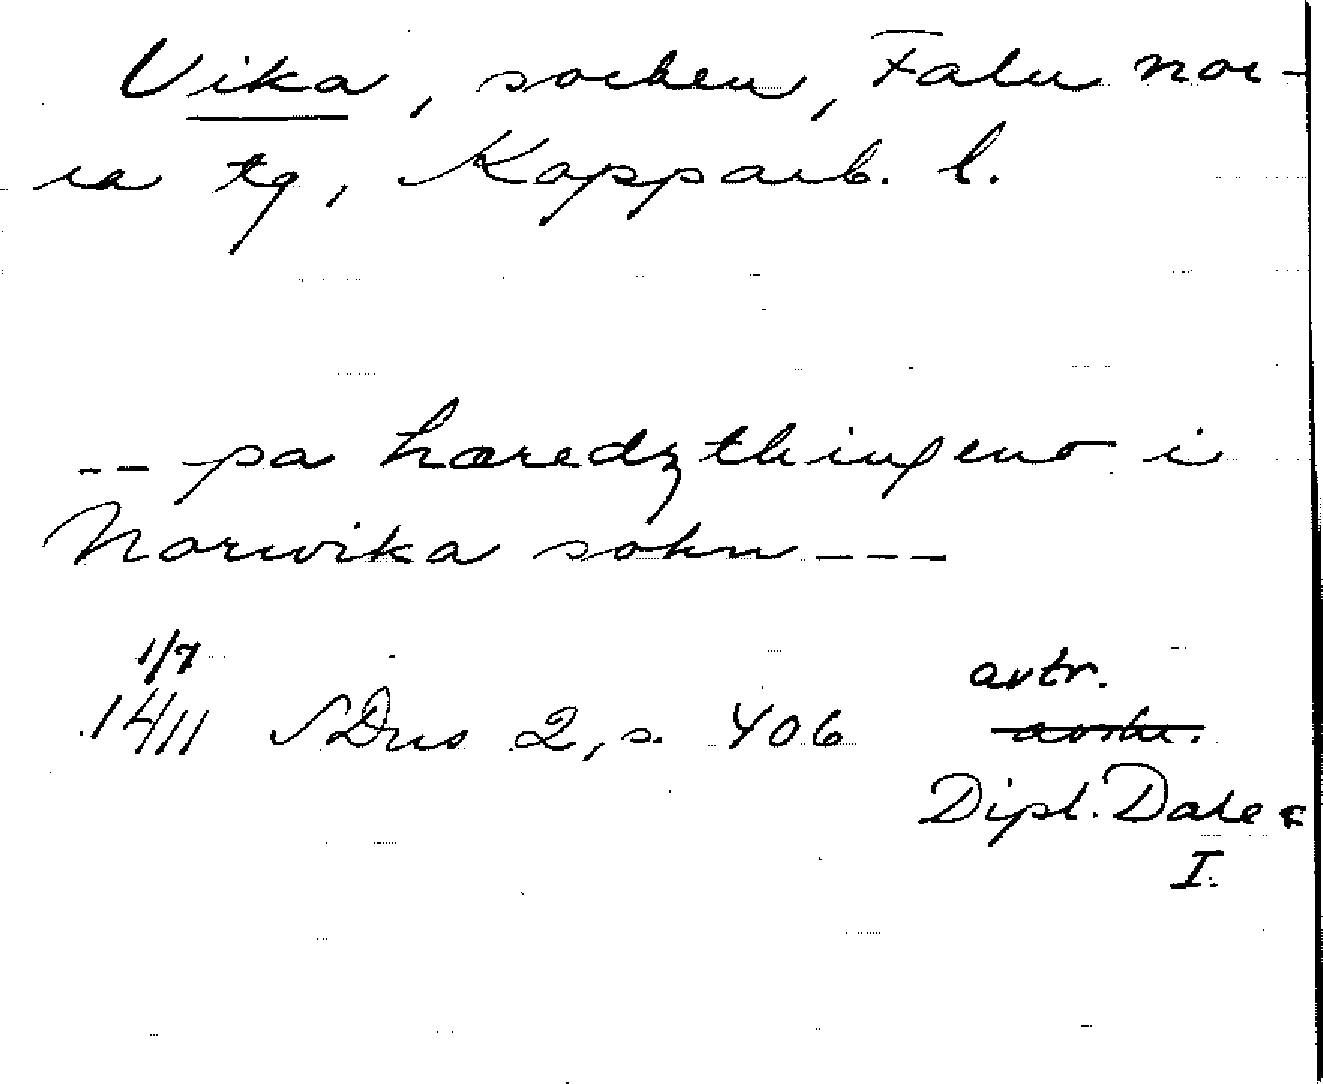 Vika, socken, Falu nor-
ra tg, Kopparb. l.
-- pa hæredzthingeno i
Norwika sokn ---
1/7
1411 SDns 2, s. 406 avtr.
Dipl. Dalec
I.